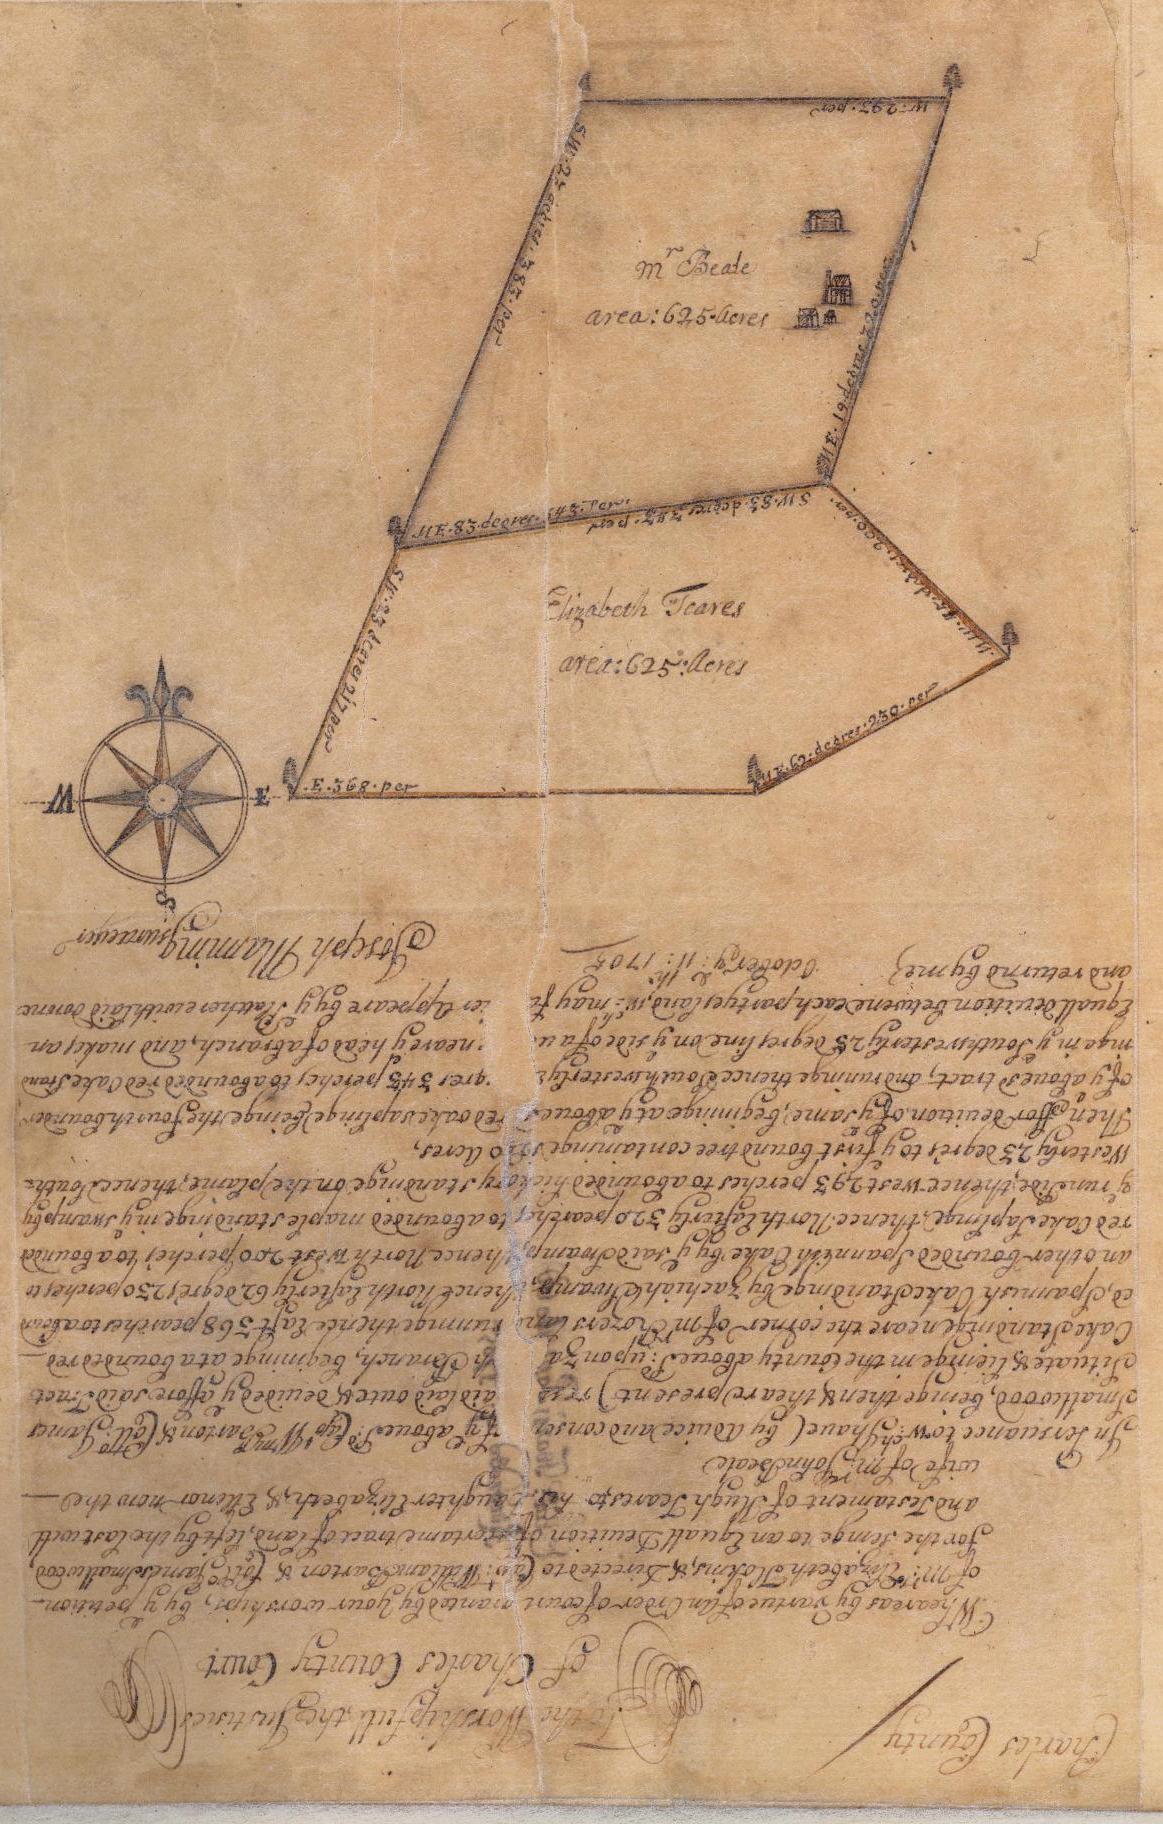 W: 293: per
S W: 23 degres: 383: per
NE: 19: degres 320: per
mr Beale
area: 625: Acres
NE: 83: degres: 343: per:
SW: 83: degres 343: per
NW: 45: degres: 200: per
S W: 23 degres 217 per
Elizabeth Teares
area: 625: Acres
NE: 62: degres: 230: per
E: 368: per
W
E
S
Charles County
To the Worshipfull the Justices
of Charles County Court
Whereas by vartue of an Order of court granted by your worships, by y petition
of mrs: Elizabeth Hoskins, & Directed to Capt: William Barton & Collo James Smallwood,
for the seinge to an Equall Deuition of a certaine tract of land, left by the last will
and Testament of Hugh Teares, to his daughter Elizabeth, & Elienor now the
wife of mr John Beale
In Persuance to wch I haue (by Aduice and consent of y aboue sd: Capt Wm Barton & Coll: James
Smallwood, being then & theare present) laid out & deuided y affore said Tract
Situate & lieinge in the County aboue sd: upon Branch, beginings at a bounded red
Oake Standinge neare the corner of mr Crozers land runinge thence East 368 pearches to a bound
ed Spannish Oake Standinge by Zachiah Swamp, thence North Easterly 62 degres 230 perches to
an other bounded Spannish Oake by y said Swamp, thence North west 200 perches to a bounded
red Oake Saplinge, thence North Easterly 320 pearches to a bounded maple standinge in y swamp by
y runs side, thence west 293 perches to a bounded hickory standinge on the plaine, thence South
Westerly 23 degres to y first bound tree containinge 1250 Acres,
Then for deuition of y same, beginings at y aboues red oake saplinge being the fourth bounder
of y aboue sd tract, and runinge thence Southwesterly 83 degres 343 perches to a bounded red Oake stand
inge in y Southwesterly 23 degres line on y side of a neare y head of a branch, and makes an
Equall deuition betweene each partyes land, wch: may Appeare by y Platt herewith laid downe
and returnd by me
October y 11th: 1705
Joseph Manning
surueyer